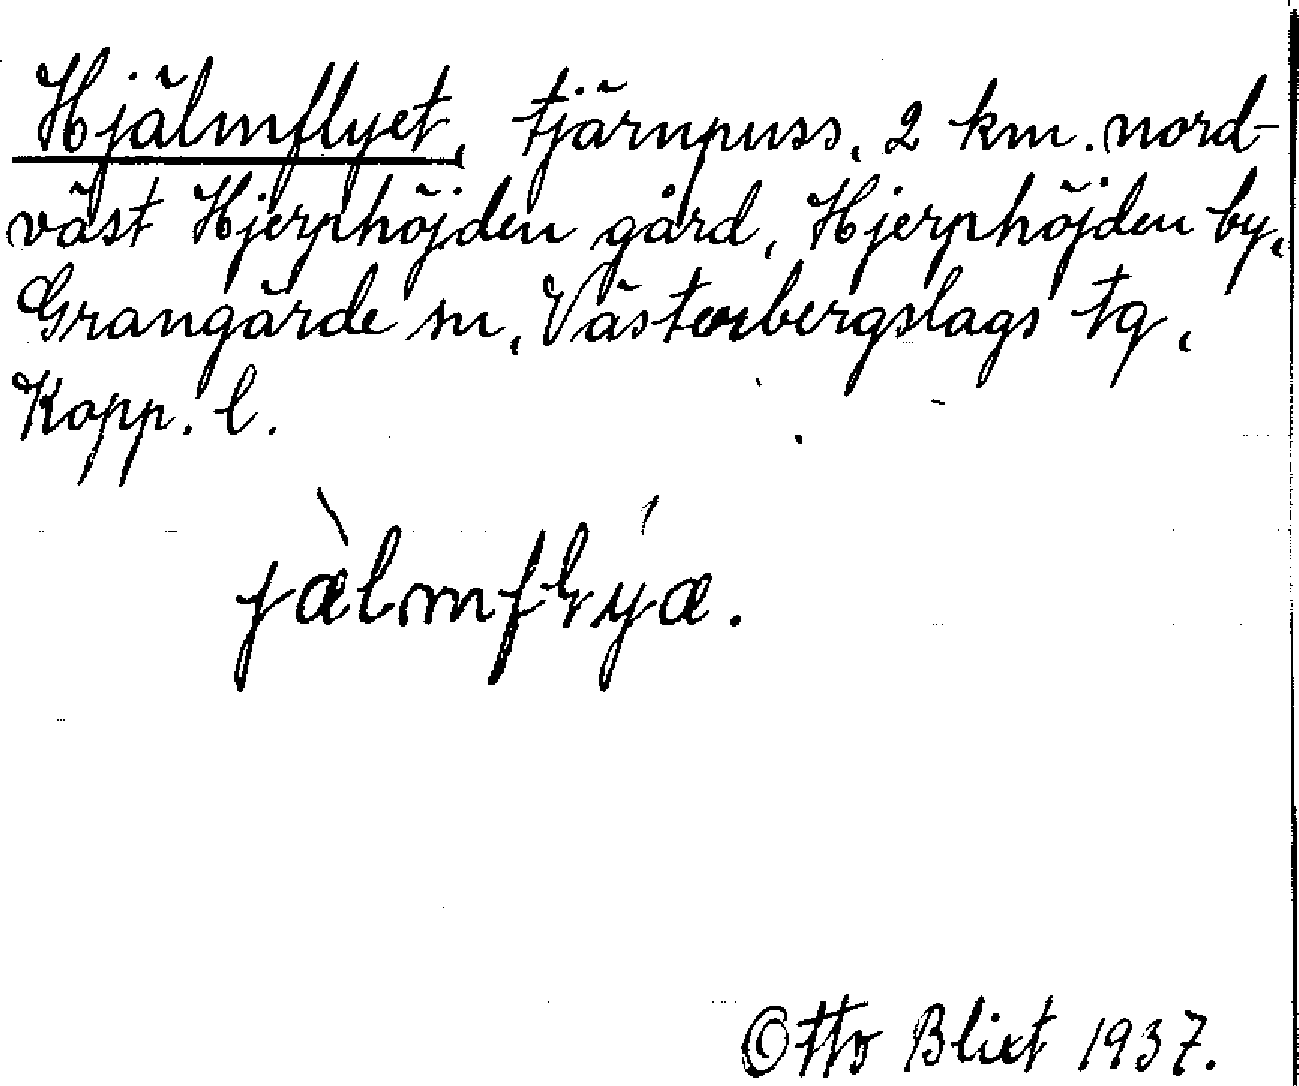 Hjälmflyet, tjärnpuss, 2 km. nord-
väst Hjerphöjden gård, Hjerphöjden by,
Grangärde sn, Västerbergslags tg,
Kopp. l.
jæ̀lmflýæ.
Otto Blixt 1937.